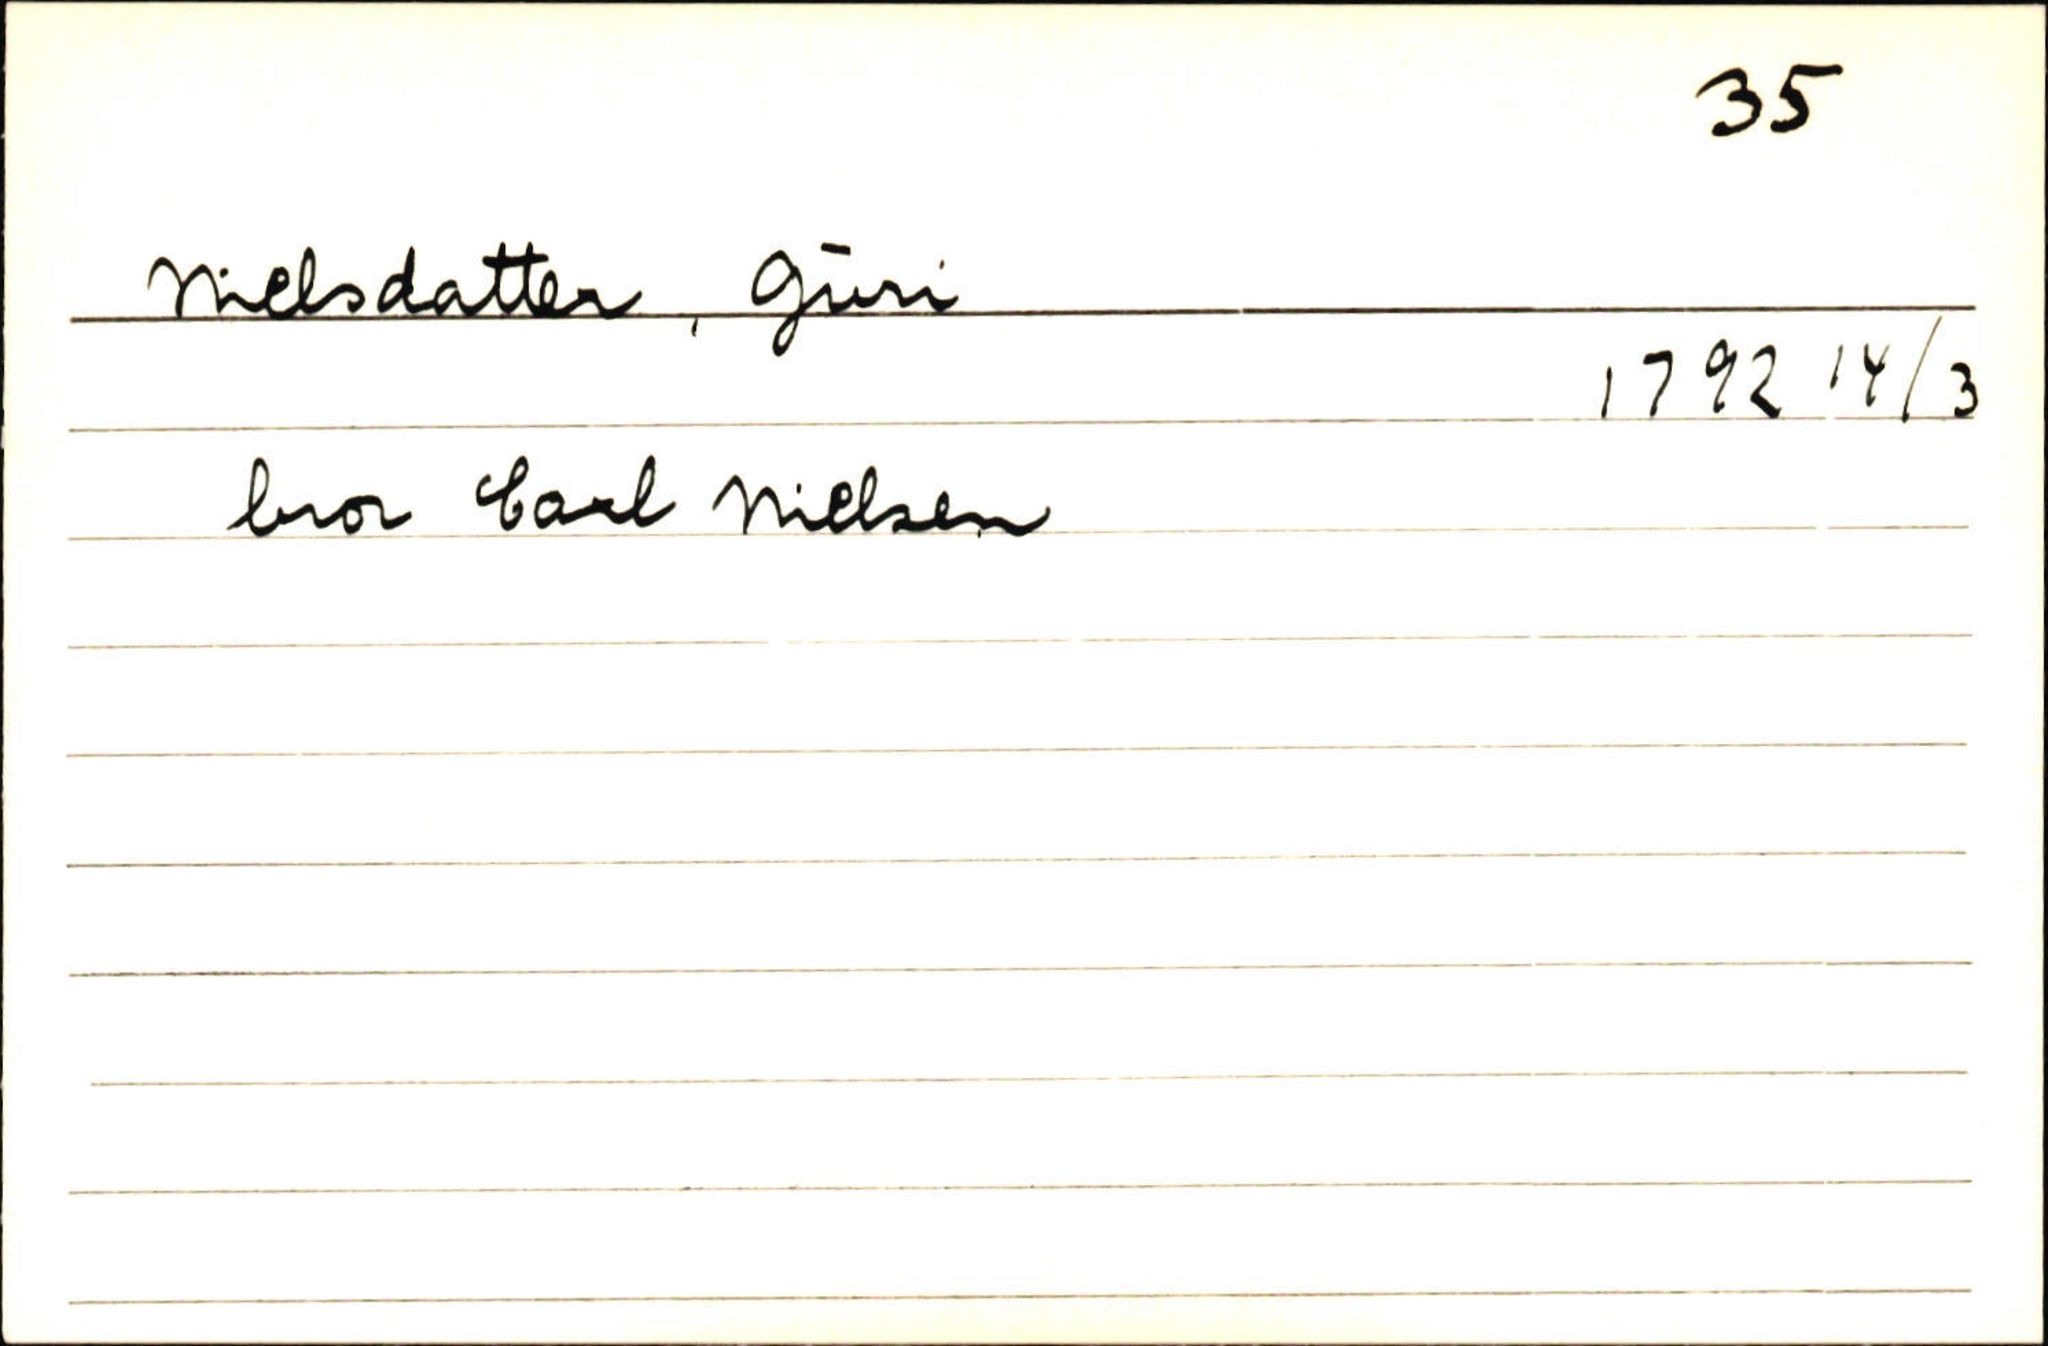 35
Nielsdatter, Gūri
1792 14/3
bror Carl Nielsen